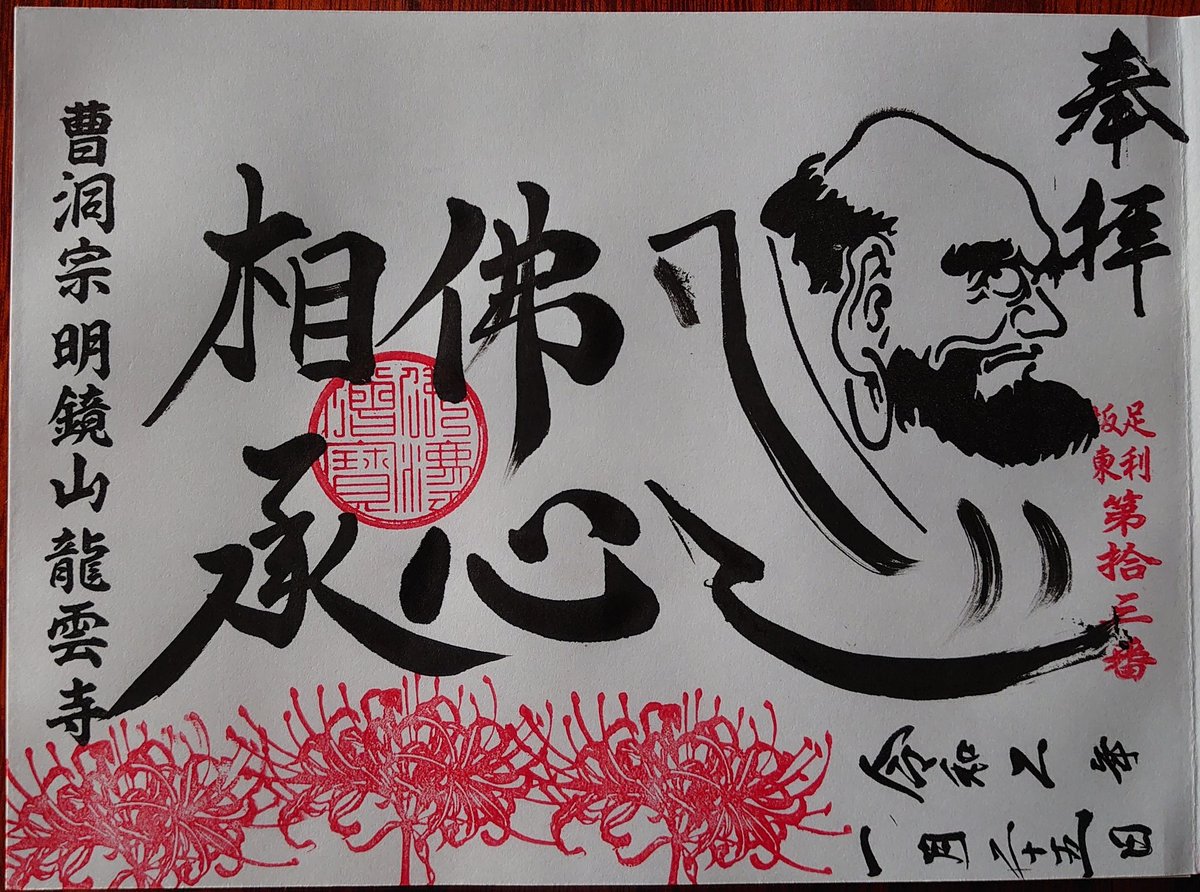 奉拝
足利
坂東
第拾三番
佛心
相承
佛法僧寶
曹洞宗明鏡山龍雲寺
令和二年
一月二十五日